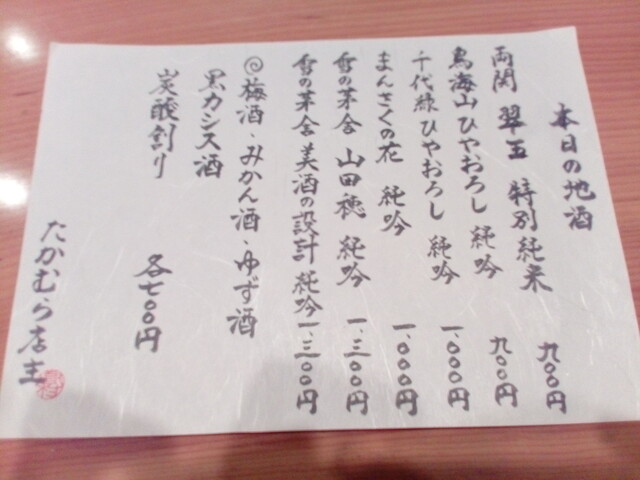 本日の地酒
両関 翠玉 特別純米 九〇〇円
鳥海山 ひやおろし 純吟 九〇〇円
千代緑 ひやおろし 純吟 一、〇〇〇円
まんさくの花 純吟 一、〇〇〇円
雪の茅舎 山田穂 純吟 一、三〇〇円
雪の茅舎 美酒の設計 純吟 一、三〇〇円
◎梅酒、みかん酒、ゆず酒
黒カシス酒
炭酸割り 各七〇〇円
たかむら店主